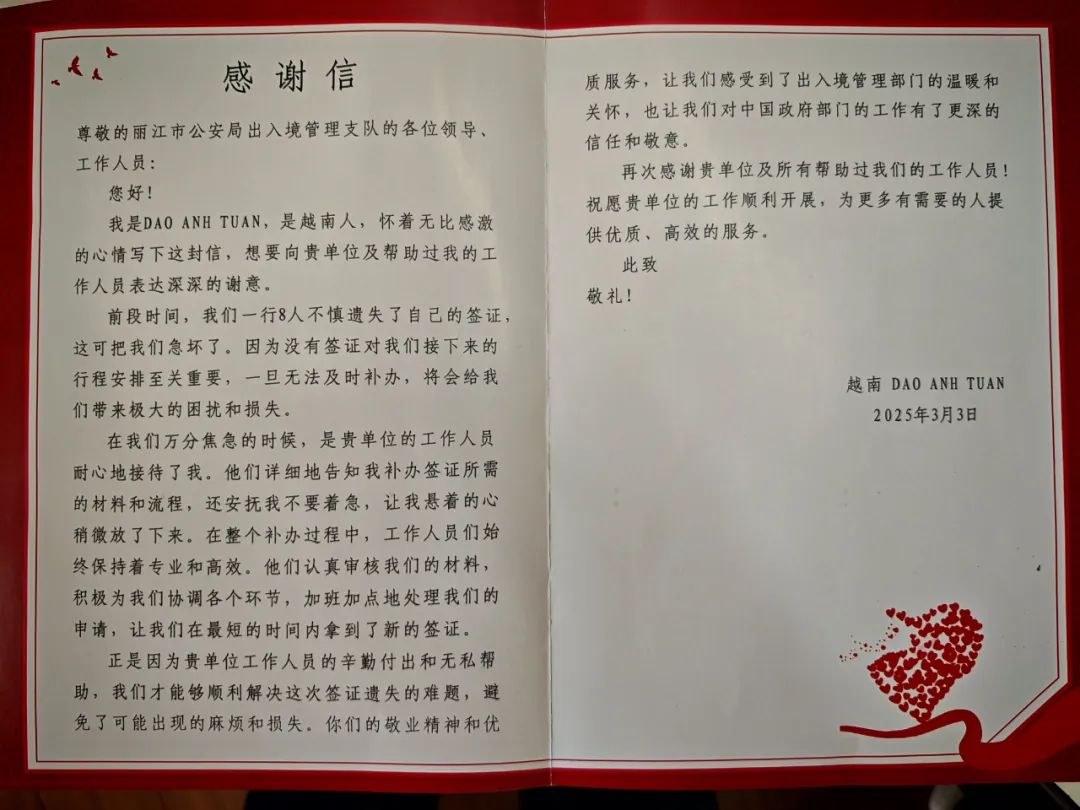 感谢信
尊敬的丽江市公安局出入境管理支队的各位领导、
工作人员：
您好！
我是DAO ANH TUAN，是越南人，怀着无比感激
的心情写下这封信，想要向贵单位及帮助过我的工
作人员表达深深的谢意。
前段时间，我们一行8人不慎遗失了自己的签证，
这可把我们急坏了。因为没有签证对我们接下来的
行程安排至关重要，一旦无法及时补办，将会给我
们带来极大的困扰和损失。
在我们万分焦急的时候，是贵单位的工作人员
耐心地接待了我。他们详细地告知我补办签证所需
的材料和流程，还安抚我不要着急，让我悬着的心
稍微放了下来。在整个补办过程中，工作人员们始
终保持着专业和高效。他们认真审核我们的材料，
积极为我们协调各个环节，加班加点地处理我们的
申请，让我们在最短的时间内拿到了新的签证。
正是因为贵单位工作人员的辛勤付出和无私帮
助，我们才能够顺利解决这次签证遗失的难题，避
免了可能出现的麻烦和损失。你们的敬业精神和优
质服务，让我们感受到了出入境管理部门的温暖和
关怀，也让我们对中国政府部门的工作有了更深的
信任和敬意。
再次感谢贵单位及所有帮助过我们的工作人员！
祝愿贵单位的工作顺利开展，为更多有需要的人提
供优质、高效的服务。
此致
敬礼！
越南 DAO ANH TUAN
2025年3月3日